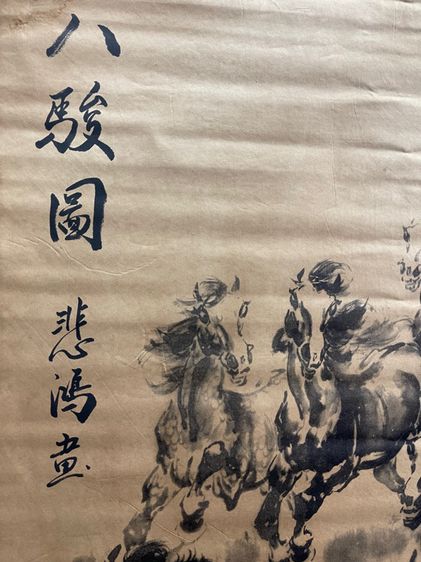 八駿圖
悲鴻畫